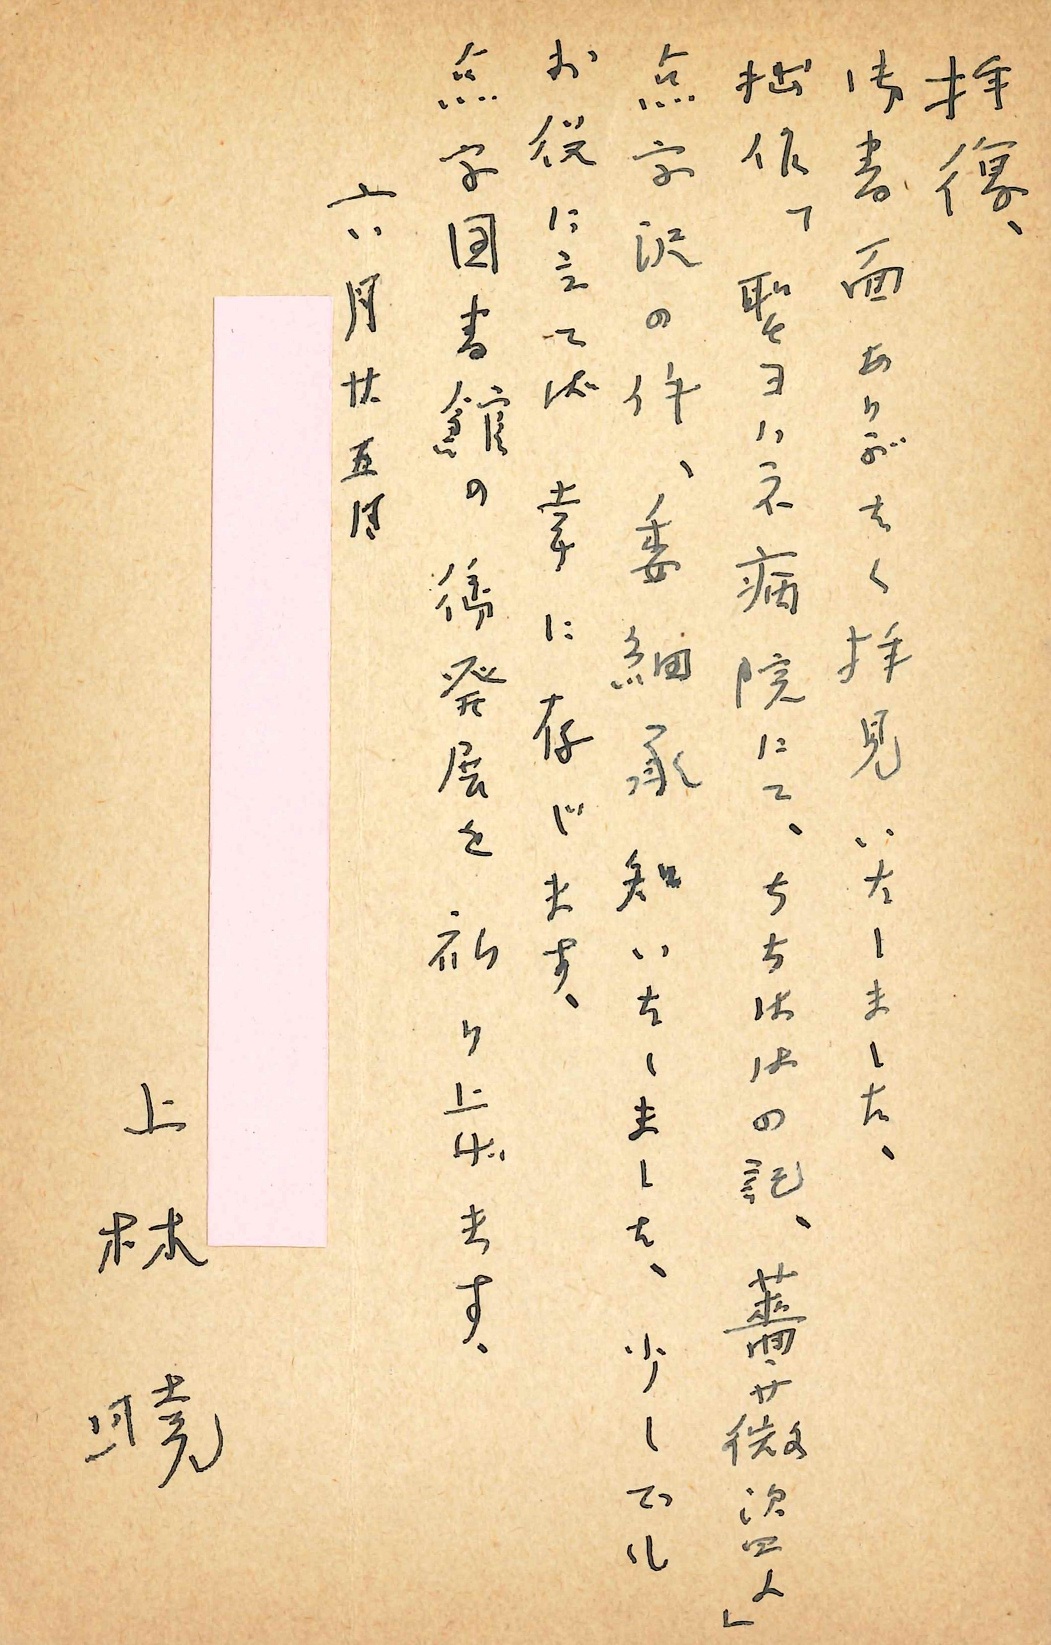 拝復、
御書面ありがたく拝見いたしました、
拙作「聖ヨハネ病院にて、ちちははの記、薔薇盗人」
点字訳の件、委細承知いたしました、少しでも
お役に立てば幸に存じます、
点字図書館の御発展を祈り上げます、
六月廿五日
上林 暁